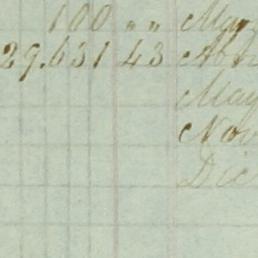 100 „ „ Mar
29.631 43 Abr
May
Nov
Dic